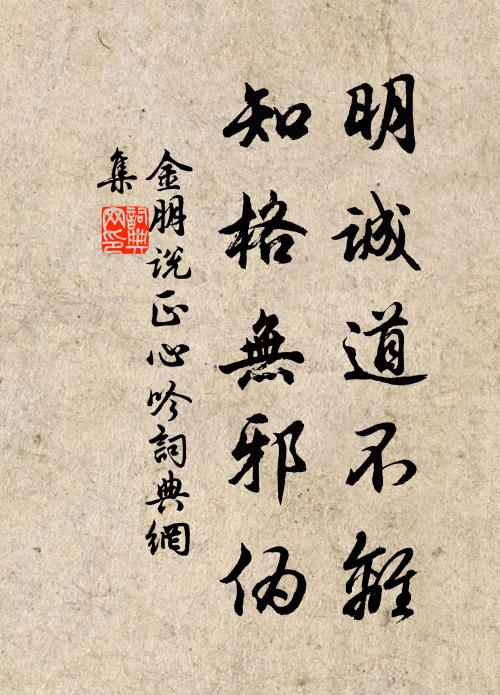 明誠道不離
知格無邪偽
金朋说正心吟詞典網
集
詞典
网印